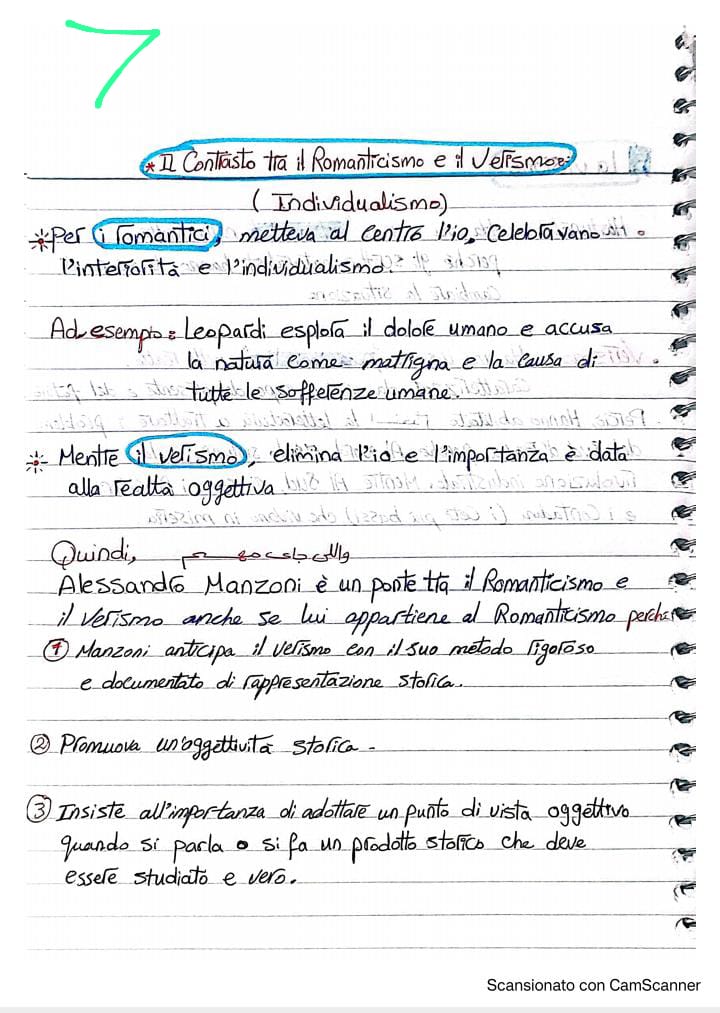 7
* Il Contrasto tra il Romanticismo e il Verismo:
( Individualismo)
* Per i romantici, metteva al centro l'io, Celebravano
l'interiorità e l'individualismo.
Ad esempio: Leopardi esplora il dolore umano e accusa
la natura come matrigna e la causa di
tutte le sofferenze umane.
* Mentre il verismo, elimina l'io e l'importanza è data
alla realtà oggettiva.
Quindi,
Alessandro Manzoni è un ponte tra il Romanticismo e
il verismo anche se lui appartiene al Romanticismo perchè
① Manzoni anticipa il verismo con il suo metodo rigoroso
e documentato di rappresentazione storica.
② Promuova un'oggettività storica -
③ Insiste all'importanza di adottare un punto di vista oggettivo
quando si parla o si fa un prodotto storico che deve
essere studiato e vero.
Scansionato con CamScanner